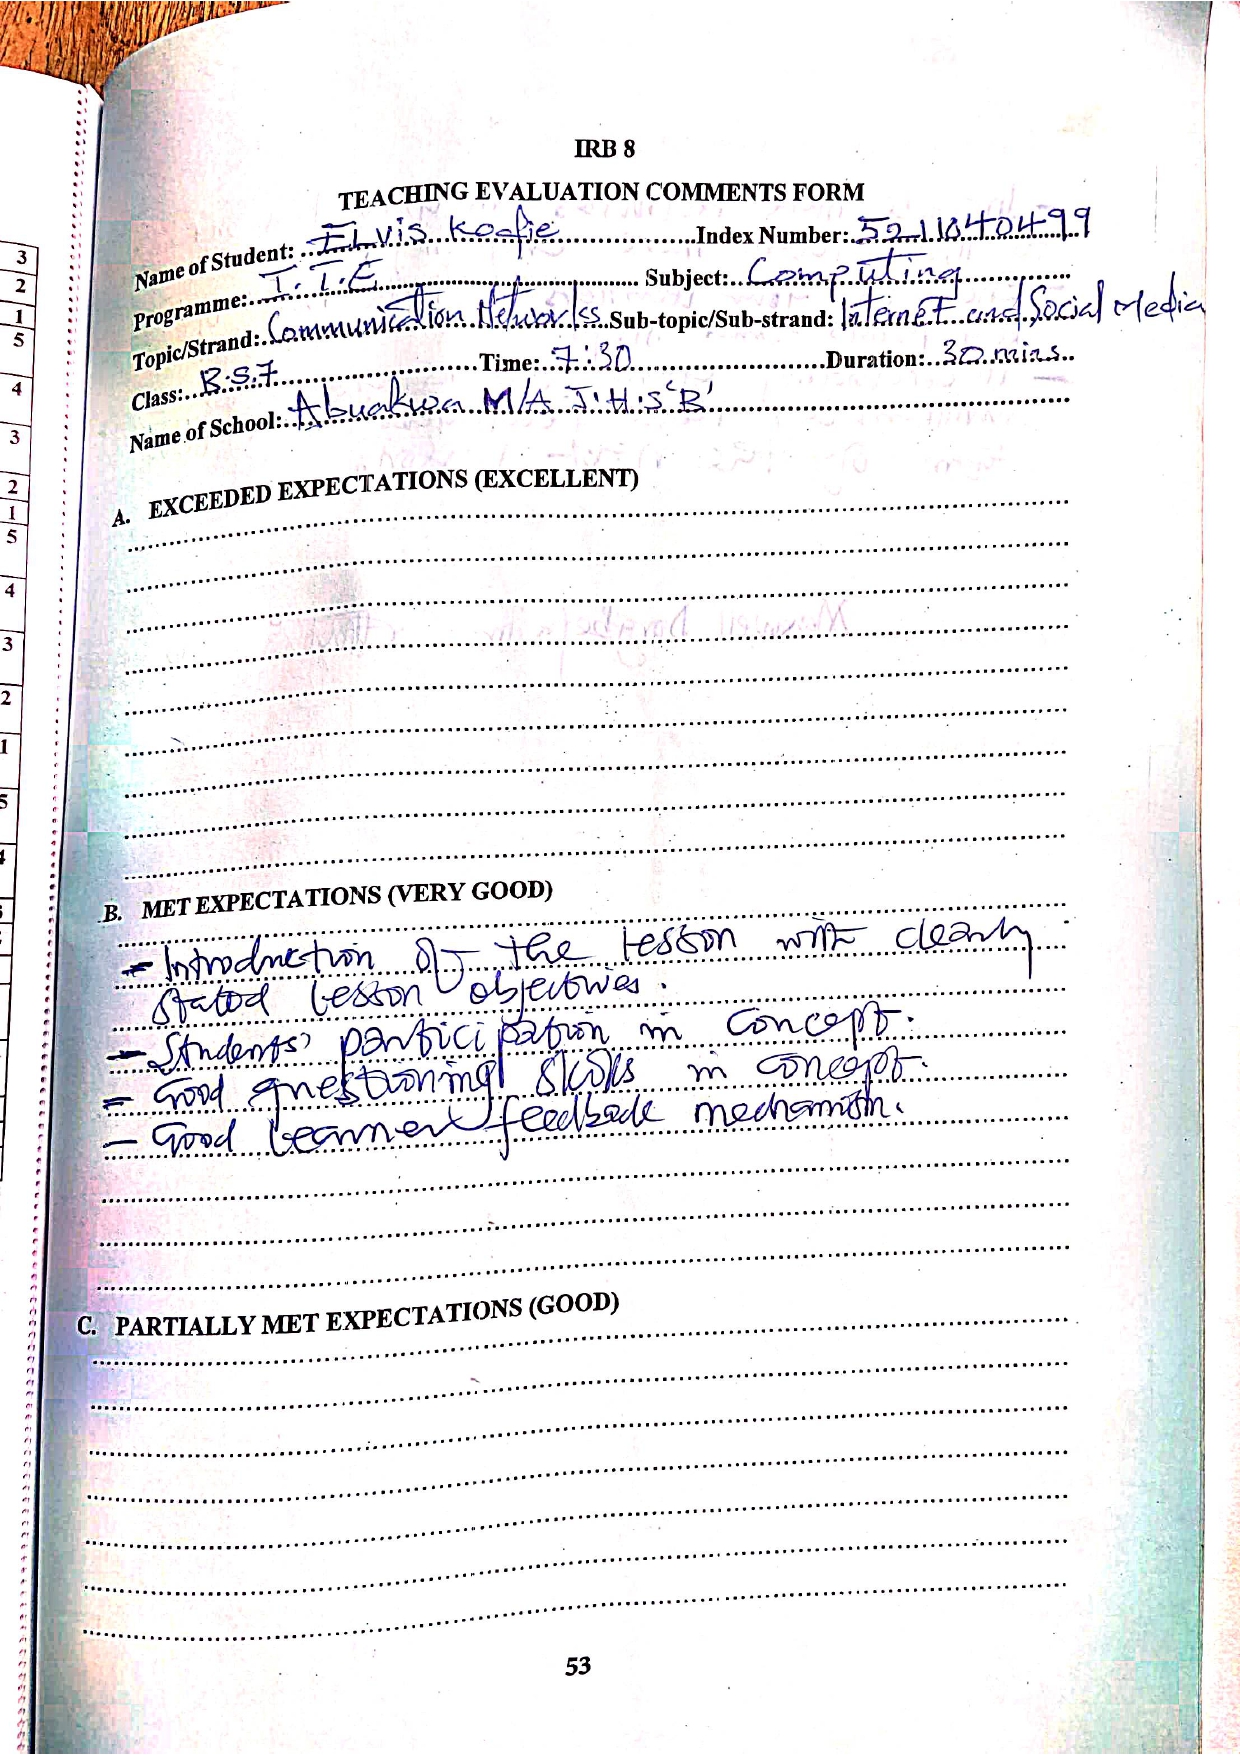 IRB 8
TEACHING EVALUATION COMMENTS FORM
Name of Student: Elvis Koofie Index Number: 5211040499
Programme: I.T.E Subject: Computing
Topic/Strand: Communication Networks Sub-topic/Sub-strand: Internet and Social Media
Class: B.S.7 Time: 7:30 Duration: 30 mins
Name of School: Abuakwa M/A J.H.S 'B'
A. EXCEEDED EXPECTATIONS (EXCELLENT)
B. MET EXPECTATIONS (VERY GOOD)
- Introduction of the lesson with clearly
stated lesson objectives.
- Students' participation in concept.
- Good questioning skills in concept.
- Good learner feedback mechanism.
C. PARTIALLY MET EXPECTATIONS (GOOD)
53
3
2
1
5
4
3
2
1
5
4
3
2
1
5